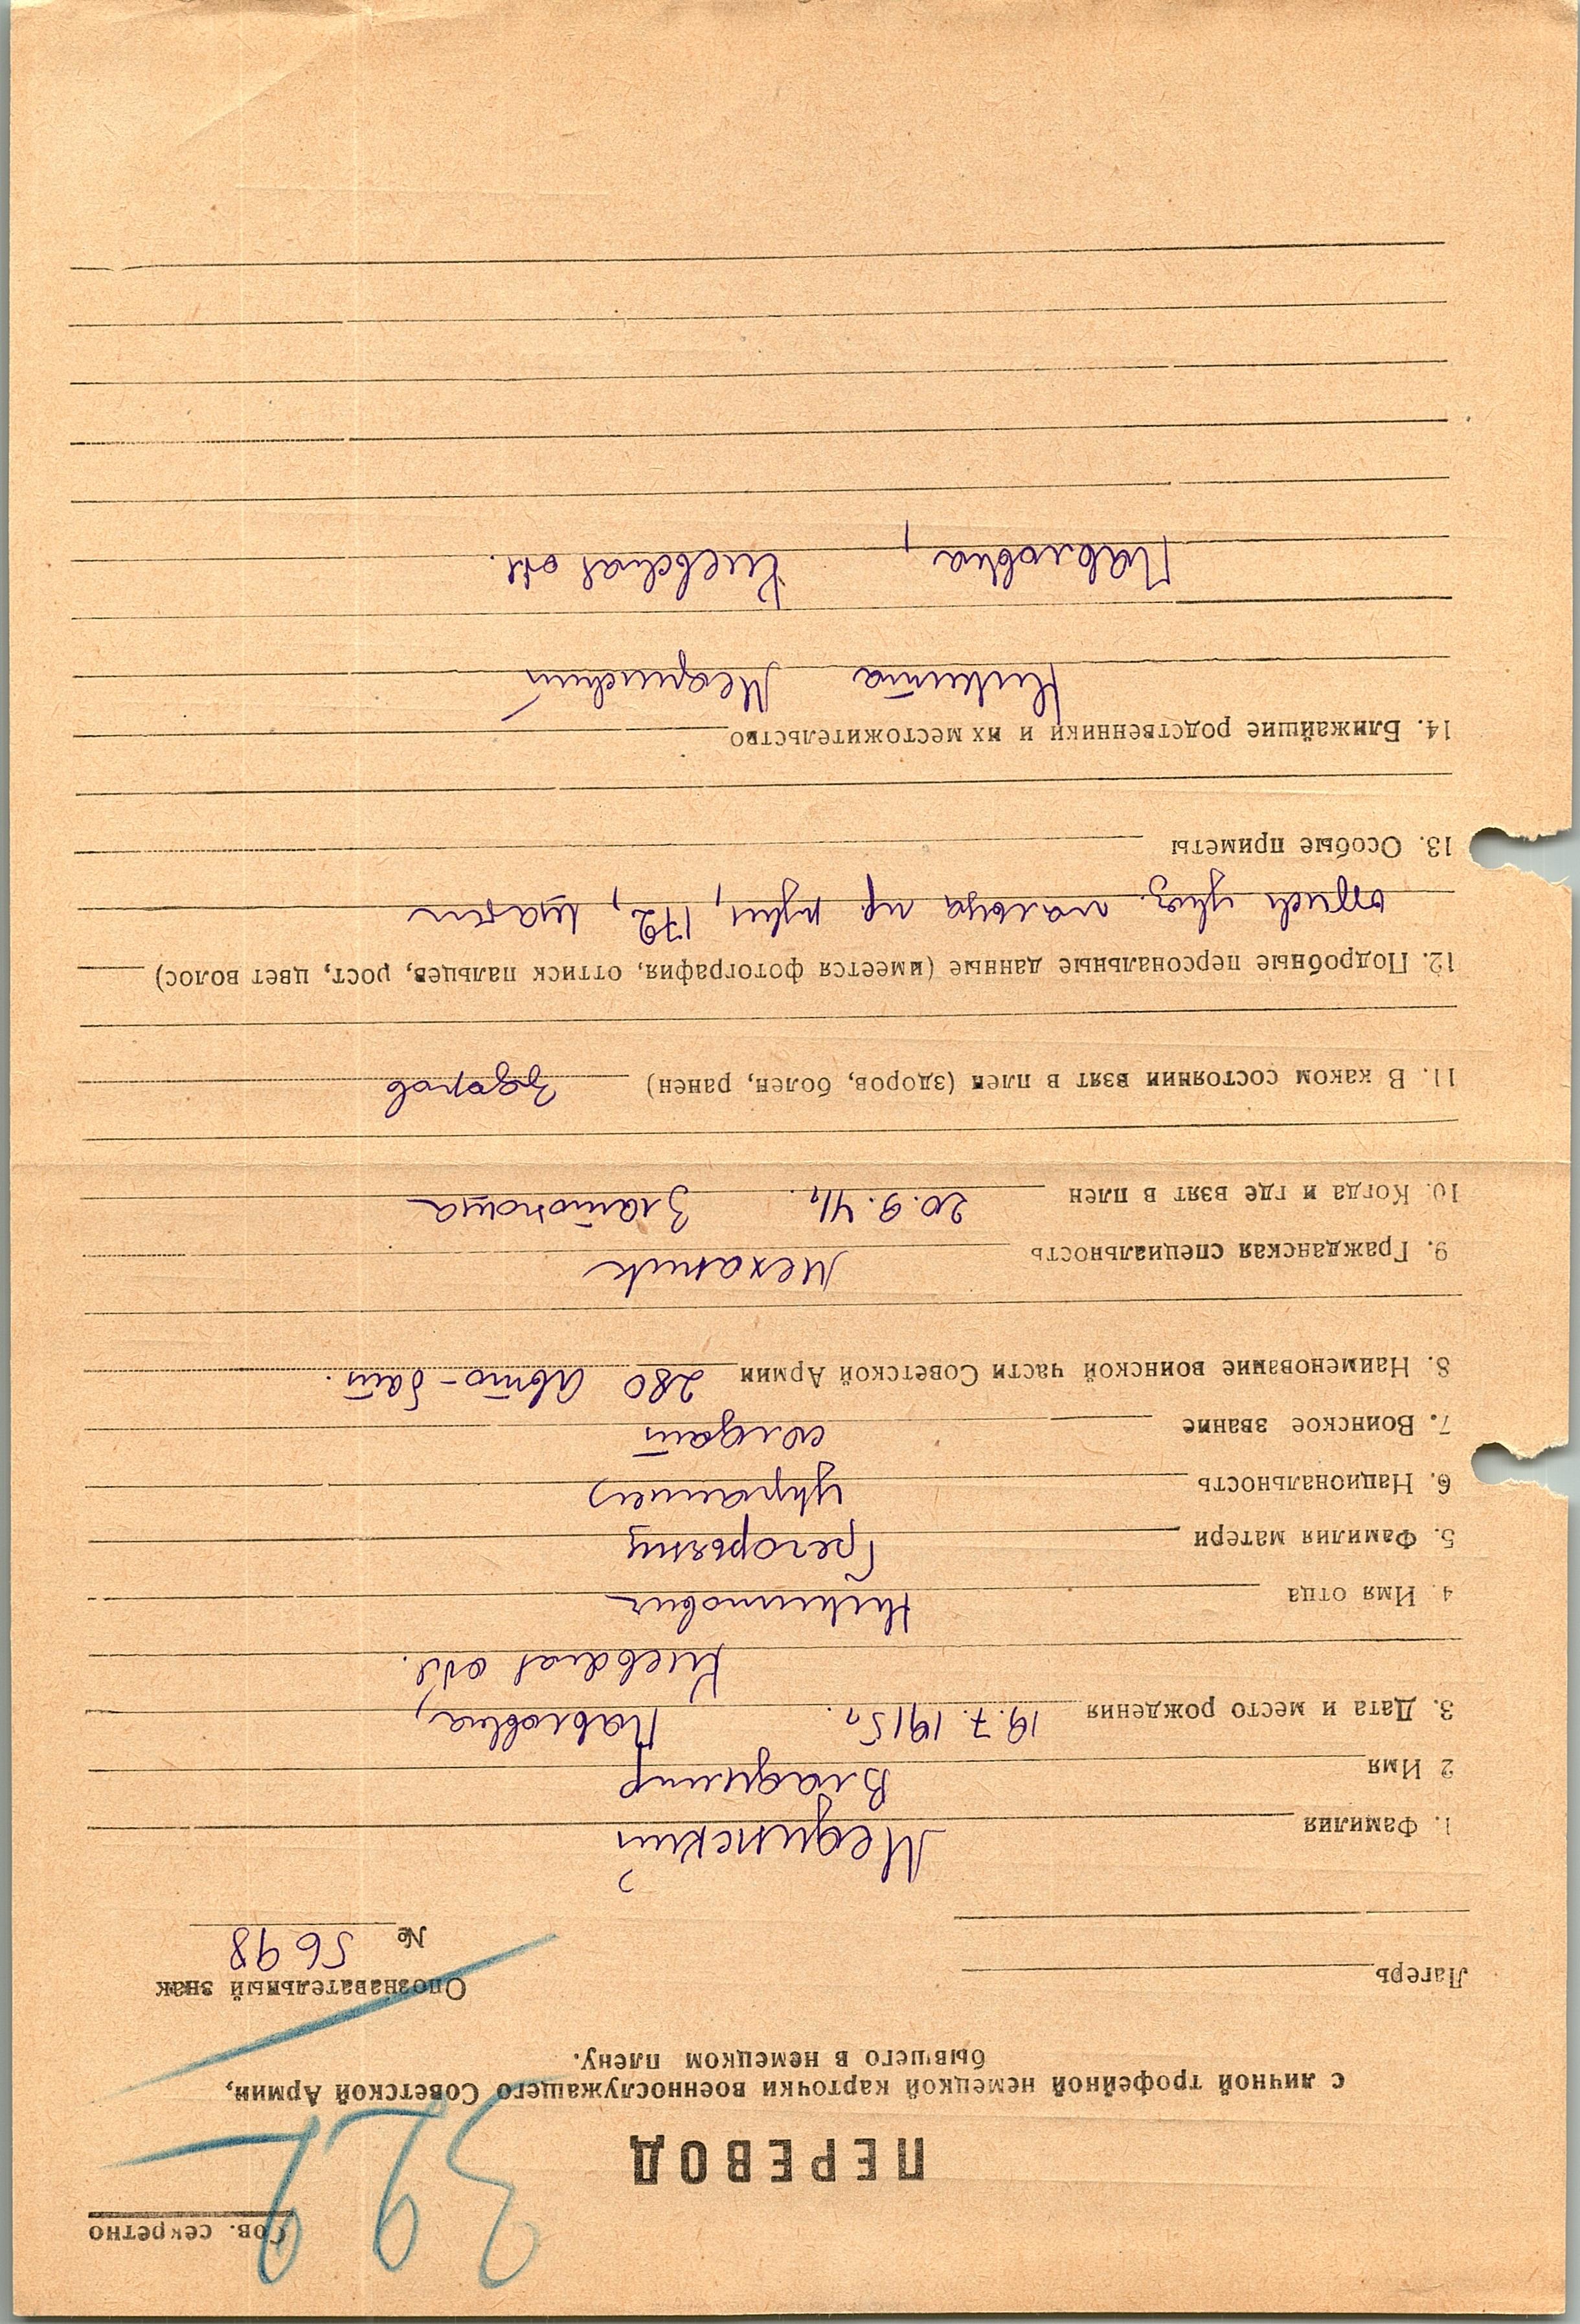 Сов. секретно
ПЕРЕВОД
с личной трофейной немецкой карточки военнослужащего Советской Армии,
бывшего в немецком плену.
Лагерь
Опознавательный знак
№ 5698
1. Фамилия Мединский
2 Имя Владимир
3. Дата и место рождения 19.7.1915г. Павловка,
Киевская обл.
4. Имя отца Никитович
5. Фамилия матери
6. Национальность украинец
7. Воинское звание солдат
8. Наименование воинской части Советской Армии 280 Авто-бат.
9. Гражданская специальность Механик
10. Когда и где взят в плен 20.9.41г. Златопоща
11. В каком состоянии взят в плен (здоров, болен, ранен) Здоров
12. Подробные персональные данные (имеется фотография, оттиск пальцев, рост, цвет волос)
указ. пальца пр. руки, 172,
13. Особые приметы
14. Ближайшие родственники и их местожительство
Никита Мединский
Павловка, Киевская обл.